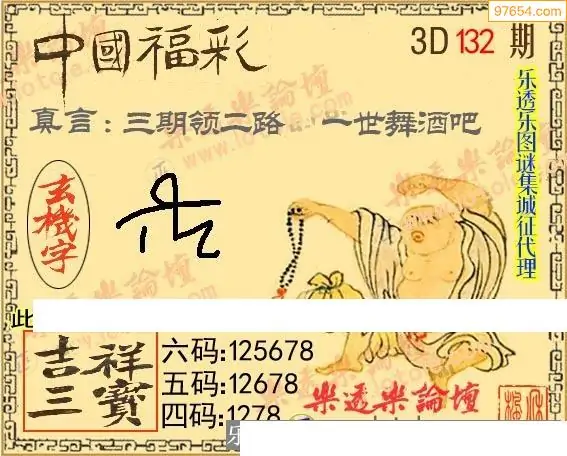 97654.com
中國福彩
3D 132 期
真言：三期领二路 一世舞酒吧
乐透乐图谜集城征代理
玄機字
此
吉祥三寶
六码:125678
五码:12678
四码:1278
樂透樂論壇
乐